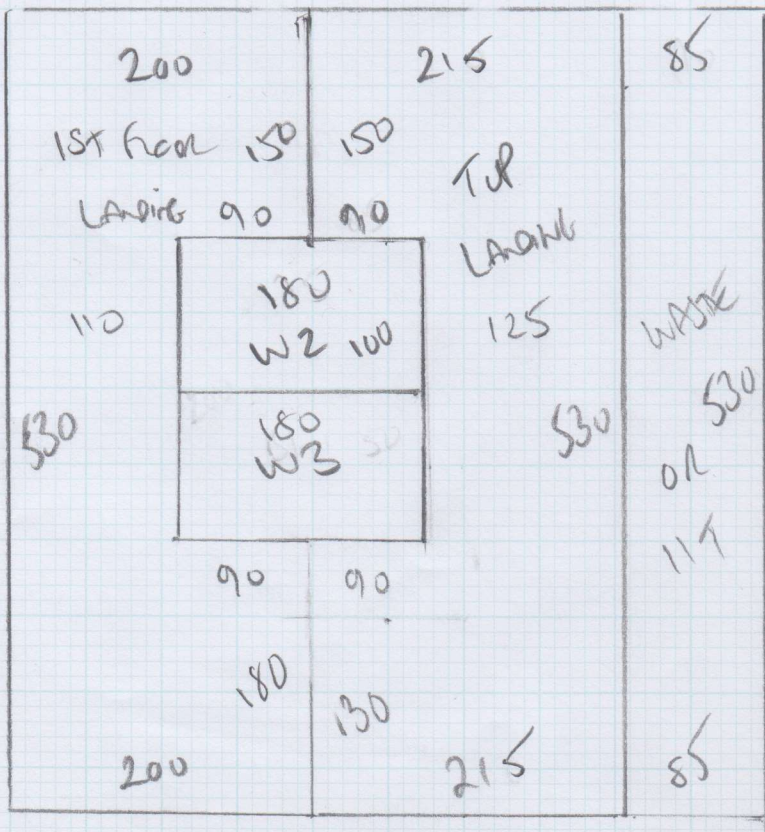 200 215 85
1ST FLOOR 150 150
TOP
LANDING 90 90
LANDING
180
110 W2 100 125
WASTE
530 180 530 530
W3
OR
90 90
180 130
200 215 85